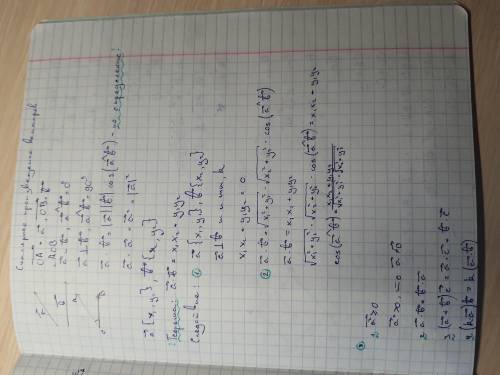 Скалярное произведение векторов
OA = a, OB = b
∠AOB
a b = 0°
a ⊥ b, a b = 90°
a · b = |a| |b| cos(a^b) - по определению!
a · a = a² = |a|²
a {x₁, y₁} b {x₂, y₂}
Теорема: a · b = x₁x₂ + y₁y₂
Следствие: ① a {x₁, y₁}, b {x₂, y₂}
a ⊥ b
x₁x₂ + y₁y₂ = 0
② a · b = √x₁² + y₁² · √x₂² + y₂² · cos(a^b)
a · b = x₁x₂ + y₁y₂
√x₁² + y₁² · √x₂² + y₂² · cos(a^b) = x₁x₂ + y₁y₂
cos(a^b) = x₁x₂ + y₁y₂ / √x₁² + y₁² · √x₂² + y₂²
③
1. a² ≥ 0
a² > 0, a ≠ 0
2. a · b = b · a
3. (a + b) c = a · c + b · c
(k a) b = k (a · b)